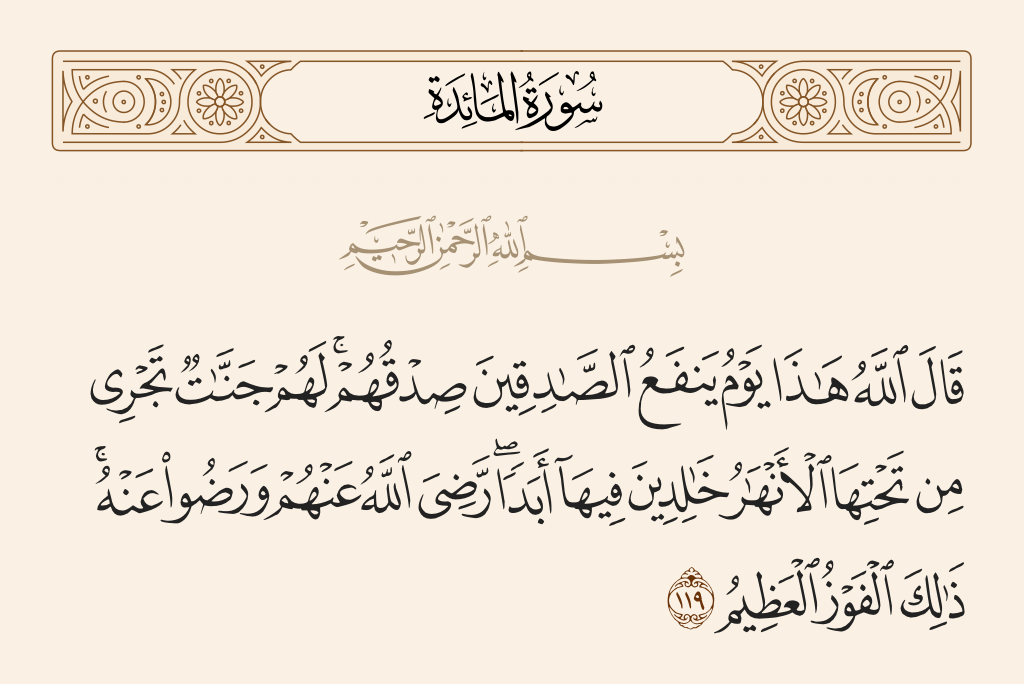 سُورَةُ المَائِدَةِ
بِسْمِ ٱللَّهِ ٱلرَّحْمَٰنِ ٱلرَّحِيمِ
قَالَ ٱللَّهُ هَـٰذَا يَوْمُ يَنفَعُ ٱلصَّـٰدِقِينَ صِدْقُهُمْ ۚ لَهُمْ جَنَّـٰتٌ تَجْرِى
مِن تَحْتِهَا ٱلْأَنْهَـٰرُ خَـٰلِدِينَ فِيهَآ أَبَدًا ۖ رَّضِىَ ٱللَّهُ عَنْهُمْ وَرَضُوا۟ عَنْهُ ۚ
ذَٰلِكَ ٱلْفَوْزُ ٱلْعَظِيمُ ١١٩